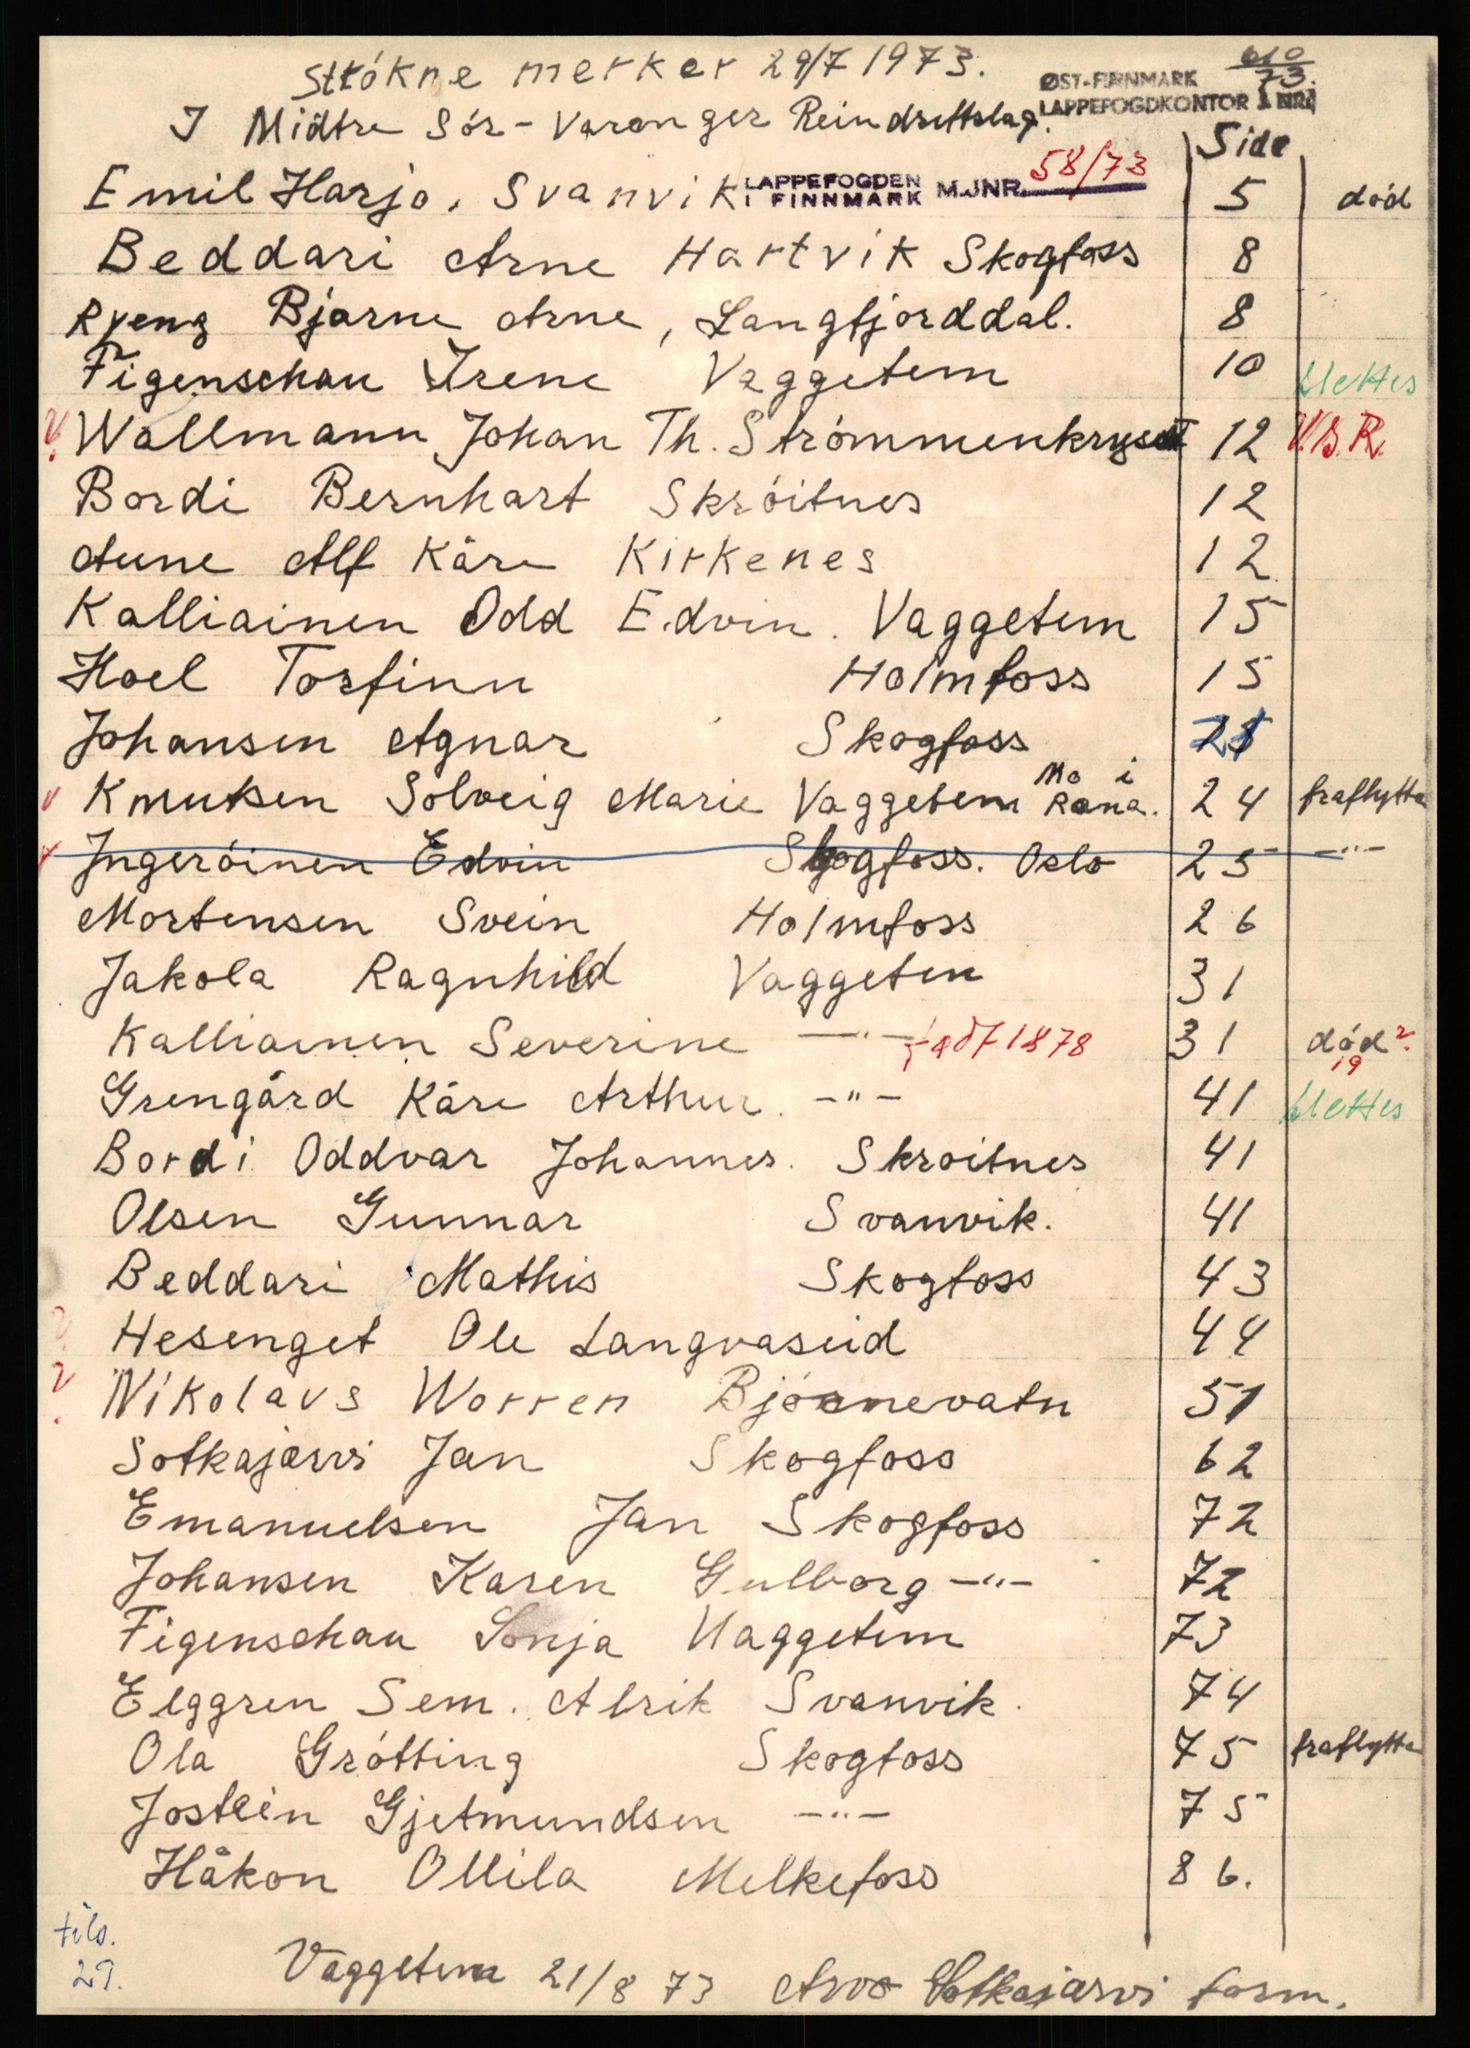 Strókne merker 29/7 1973.
610/73.
ØST-FINNMARK
LAPPEFOGDKONTOR J.NR.
I Midtre Sór-Varanger Reindriftslag.
Side
Emil Harjo, Svanvik
LAPPEFOGDEN
I FINNMARK
M.JNR. 58/73
5 død
Beddari Arne Hartvik Skogfoss 8
Ryeng Bjarne Arne, Langfjorddal. 8
Figenschau Irene Vaggetem 10 slettes
Wallmann Johan Th. Strómmenkryset 12 V.S.R.
Bordi Bernhart Skróitnes 12
Aune Alf Kåre Kirkenes 12
Kalliainen Odd Edvin. Vaggetem 15
Hoel Torfinn Holmfoss 15
Johansen Agnar Skogfoss
Knutsen Solveig Marie Vaggetem Mo i Rana. 24 fraflytta
Ingeróinen Edvin Skogfoss. Oslo 25 -"-
Mortensen Svein Holmfoss 26
Jakola Ragnhild Vaggetem 31
Kalliainen Severine -"- født 1878 31 død ?
19
Grengård Kåre Arthur. -"- 41 slettes
Bordi Oddvar Johannes. Skroitnes 41
Olsen Gunnar Svanvik. 41
Beddari Mathis Skogfoss 43
Hesenget Ole Langvaseid 44
Nikolavs Worren Bjórnevatn 51
Sotkajærvi Jan Skogfoss 62
Emanuelsen Jan Skogfoss 72
Johansen Karen Gulborg -"- 72
Figenschau Sonja Vaggetem 73
Elggren Sem. Alrik Svanvik. 74
Ola Grótting Skogfoss 75 fraflytta
Jostein Gjetmundsen -"- 75
Håkon Ollila Melkefoss 86.
tils.
29.
Vaggetem 21/8 73 Arvo Sotkajærvi form.